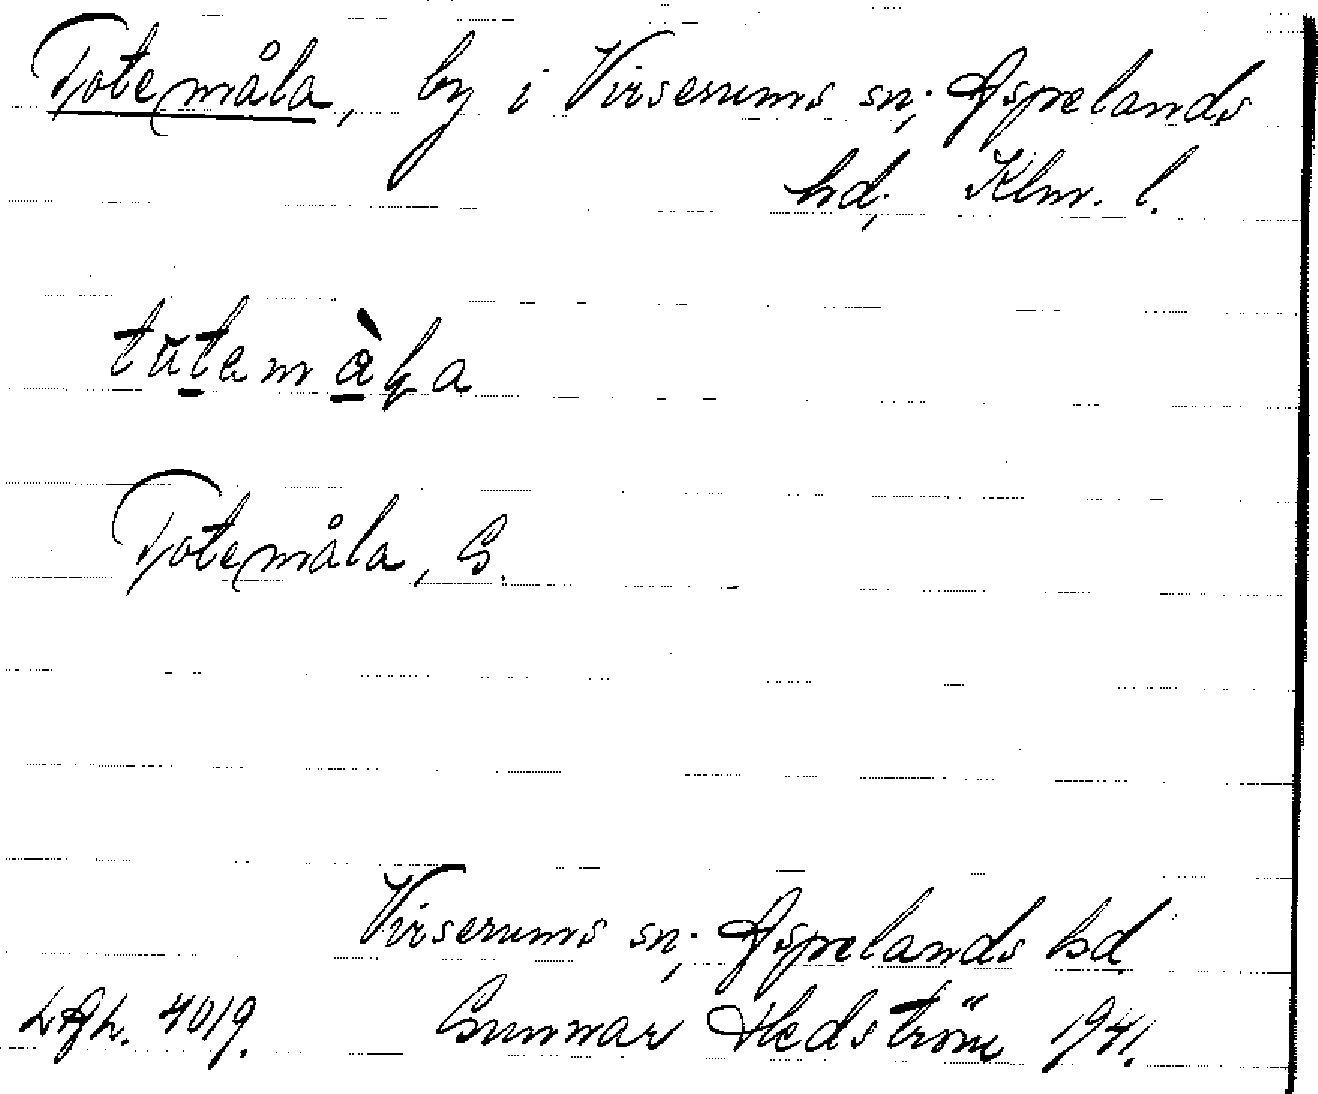 Totemåla, by i Virserums sn; Aspelands
hd; Klmr. l.
tutemåla
Totemåla, G.
Virserums sn; Aspelands hd
4019. Gunnar Hedström 1941.